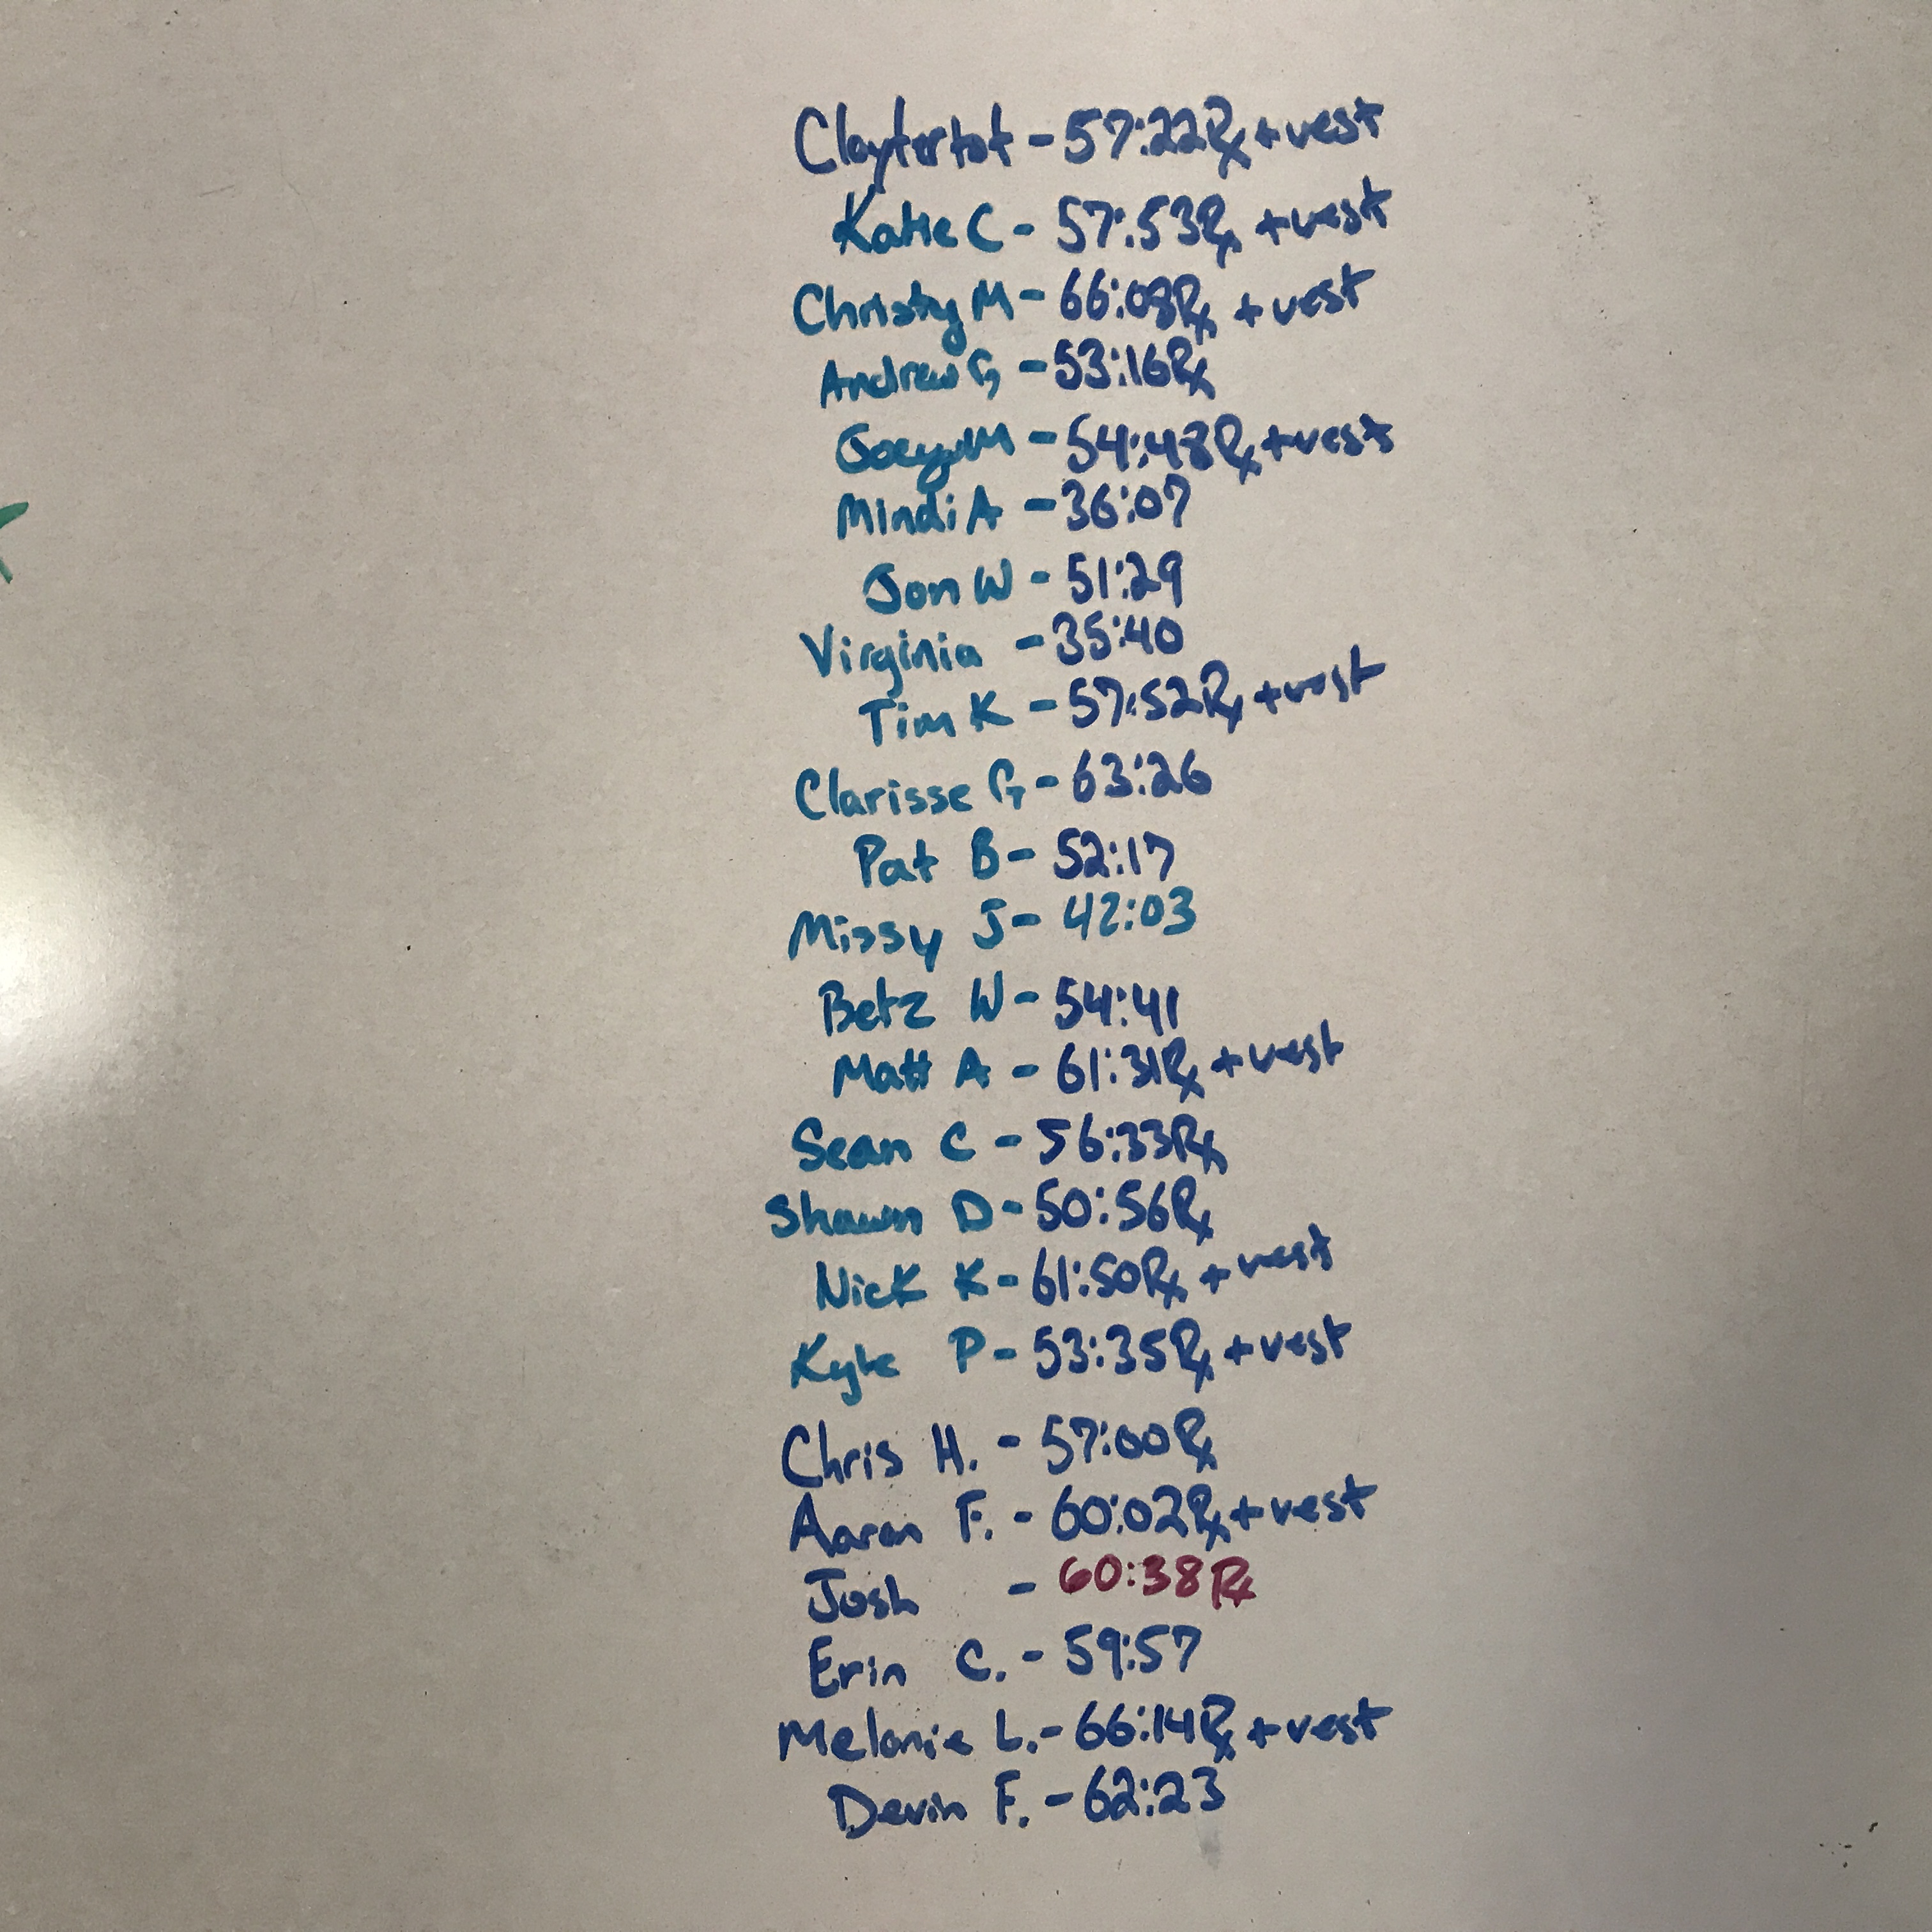 Claytertot - 57:22Rx + vest
Katie C - 57:53Rx + vest
Christy M - 66:08Rx + vest
Andrew G - 53:16Rx
Joey M - 54:48Rx + vest
Mindi A - 36:07
Jon W - 51:29
Virginia - 35:40
Tim K - 57:52Rx + vest
Clarisse G - 63:26
Pat B - 52:17
Missy J - 42:03
Betz W - 54:41
Matt A - 61:31Rx + vest
Sean C - 56:33Rx
Shawn D - 50:56Rx
Nick K - 61:50Rx + vest
Kyle P - 53:35Rx + vest
Chris H. - 57:00Rx
Aaron F. - 60:02Rx + vest
Josh - 60:38Rx
Erin C. - 59:57
Melanie L. - 66:14Rx + vest
Devin F. - 62:23